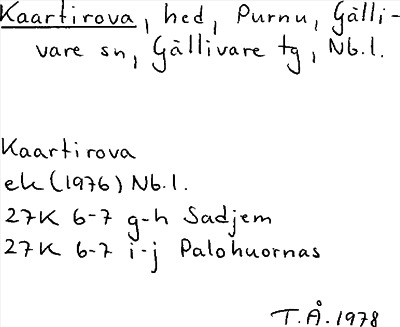 Kaartirova, hed, Purnu, Gälli-
vare sn, Gällivare tg, Nb.l.
Kaartirova
ek (1976) Nb.l.
27K 6-7 g-h Sadjem
27K 6-7 i-j Palohuornas
T.Å. 1978